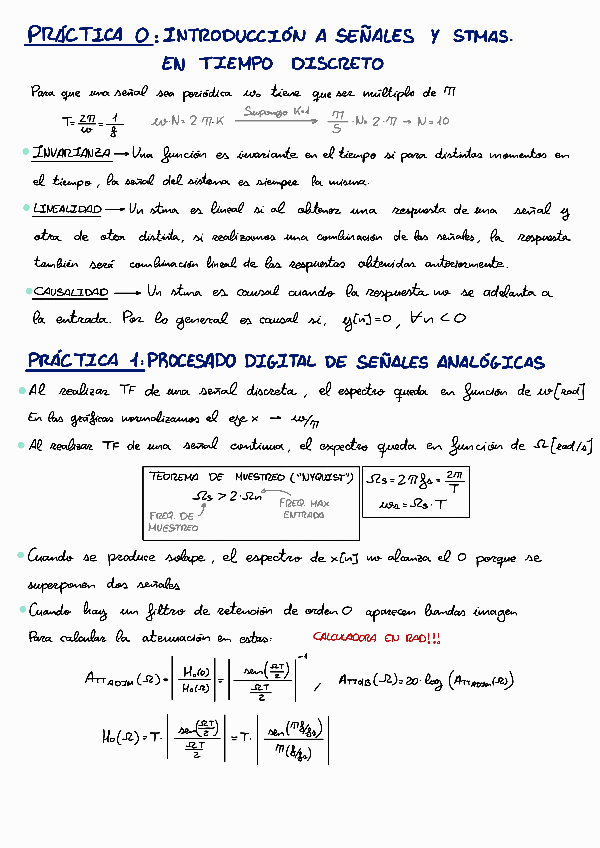 PRÁCTICA 0: INTRODUCCIÓN A SEÑALES Y STMAS.
EN TIEMPO DISCRETO
Para que una señal sea periódica ω₀ tiene que ser múltiplo de π
T = 2π/ω = 1/f   ω·N = 2·π·K   Supongo K=1 →   π/5 · N = 2·π → N = 10
• INVARIANZA → Una función es invariante en el tiempo si para distintos momentos en
el tiempo, la señal del sistema es siempre la misma.
• LINEALIDAD → Un stma es lineal si al obtener una respuesta de una señal y
otra de otra distinta, si realizamos una combinación de las señales, la respuesta
también será combinación lineal de las respuestas obtenidas anteriormente.
• CAUSALIDAD → Un stma es causal cuando la respuesta no se adelanta a
la entrada. Por lo general es causal si, y[n]=0, ∀n<0
PRÁCTICA 1: PROCESADO DIGITAL DE SEÑALES ANALÓGICAS
• Al realizar TF de una señal discreta, el espectro queda en función de ω[rad]
En las gráficas normalizamos el eje x → ω/π
• Al realizar TF de una señal continua, el espectro queda en función de Ω[rad/s]
TEOREMA DE MUESTREO ("NYQUIST")
Ωs > 2·Ωn
FREQ. DE MUESTREO
FREQ. MAX ENTRADA
Ωs = 2πfs = 2π/T
ωs = Ωs·T
• Cuando se produce solape, el espectro de x[n] no alcanza el 0 porque se
superponen dos señales
• Cuando hay un filtro de retención de orden 0 aparecen bandas imagen
Para calcular la atenuación en estas:   CALCULADORA EN RAD!!!
ATTADIM(Ω) = |H₀(0)/H₀(Ω)| = |sen(ΩT/2)/(ΩT/2)|⁻¹ , ATTdB(Ω) = 20·log(ATTADIM(Ω))
H₀(Ω) = T·|sen(ΩT/2)/(ΩT/2)| = T·|sen(πf/fs)/(π(f/fs))|